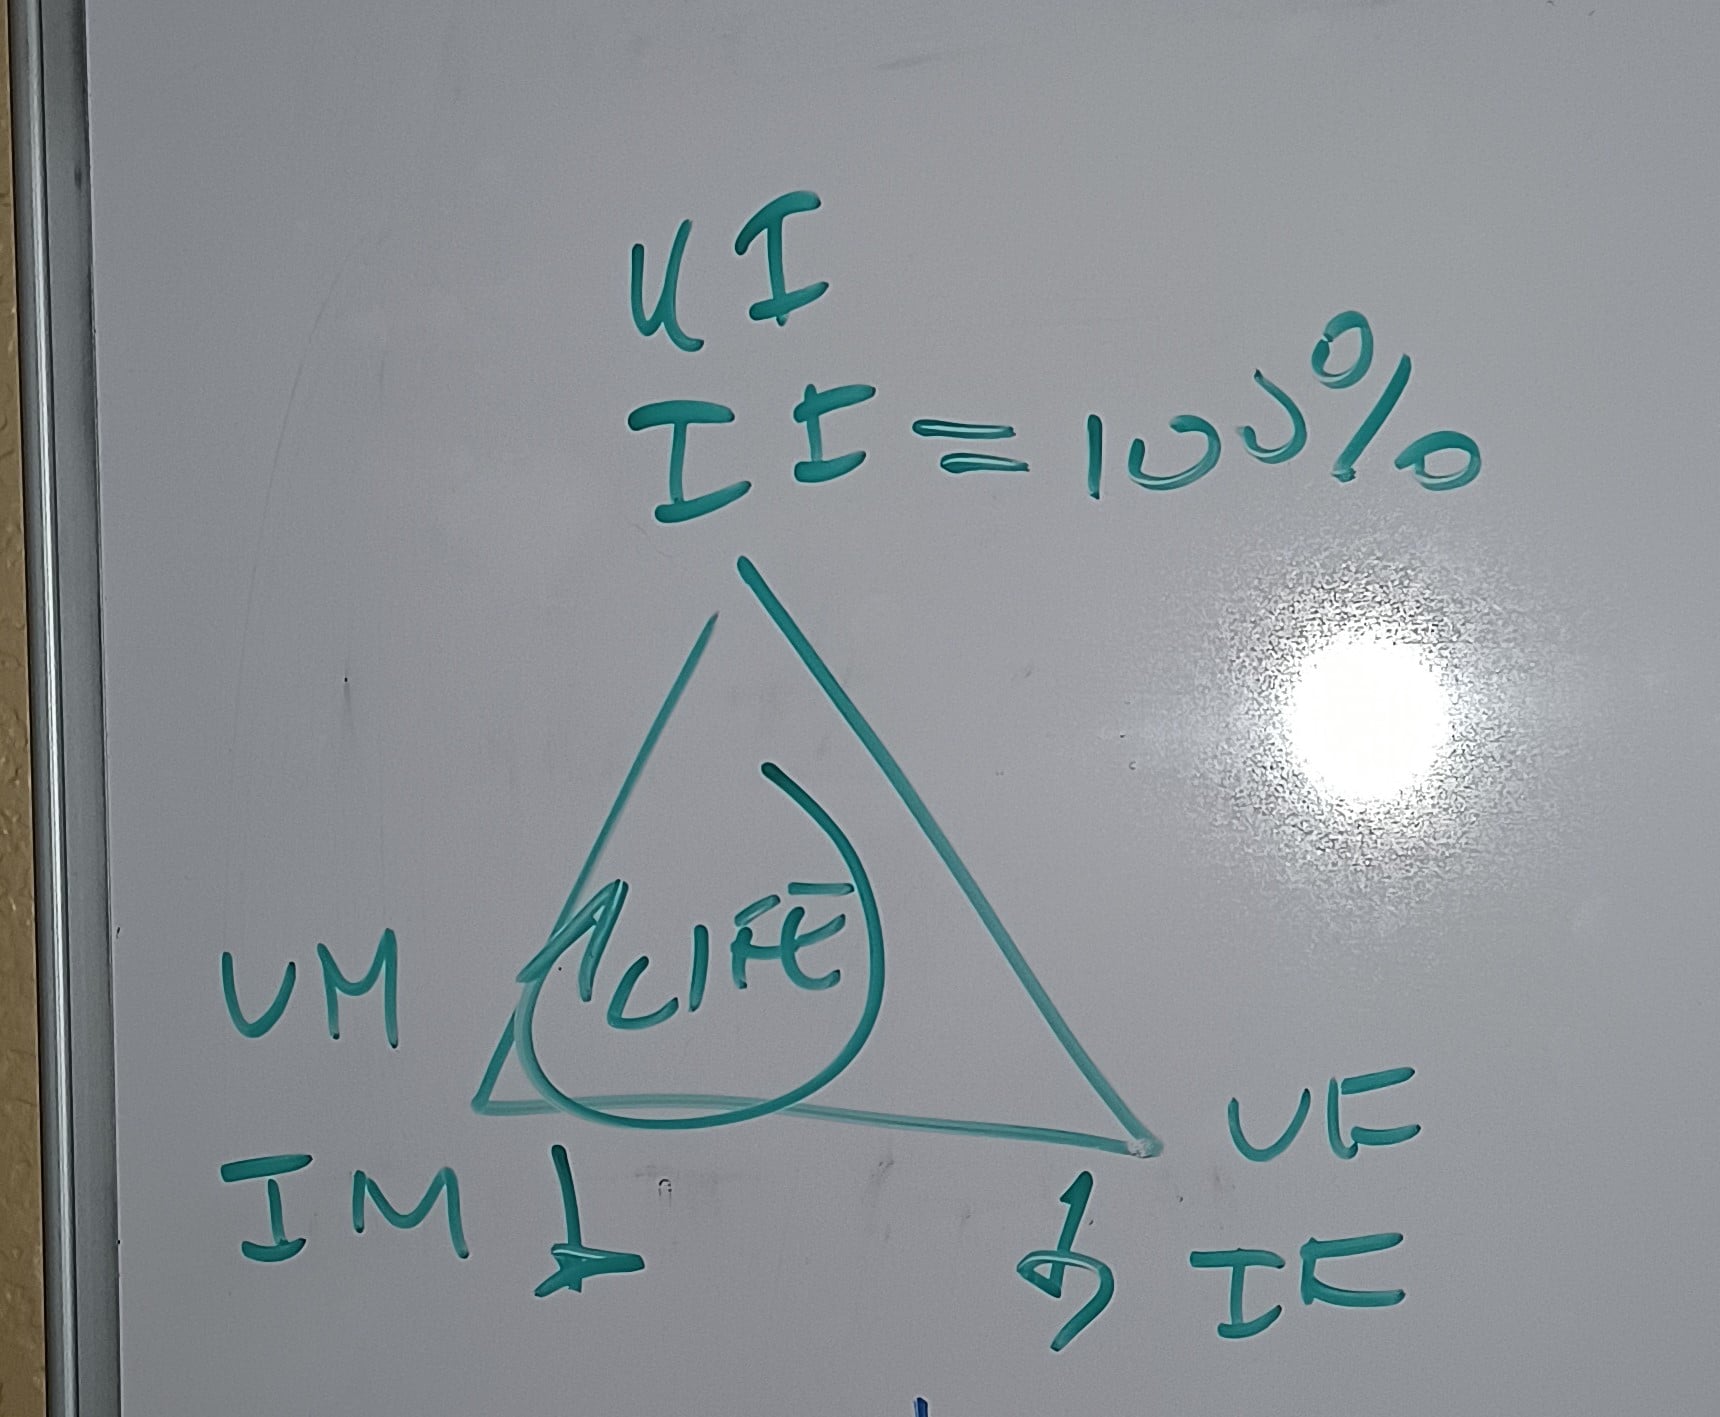 UI
II = 100%
LIFE
UM
IM
UE
IE